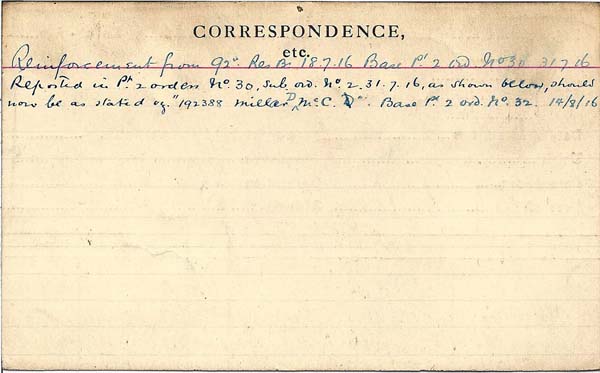 CORRESPONDENCE,
etc.
Reinforcement from 92ⁿ. Res Bn 18.7.16 Base Pt 2 ord. No 30 31.7.16
Reported in Pt 2 orders No. 30, Sub. ord. No. 2. 31.7.16, as shown below, should
now be as stated eg. "192388 Miller, D McC. Base Pt 2 ord. No. 32. 14/8/16